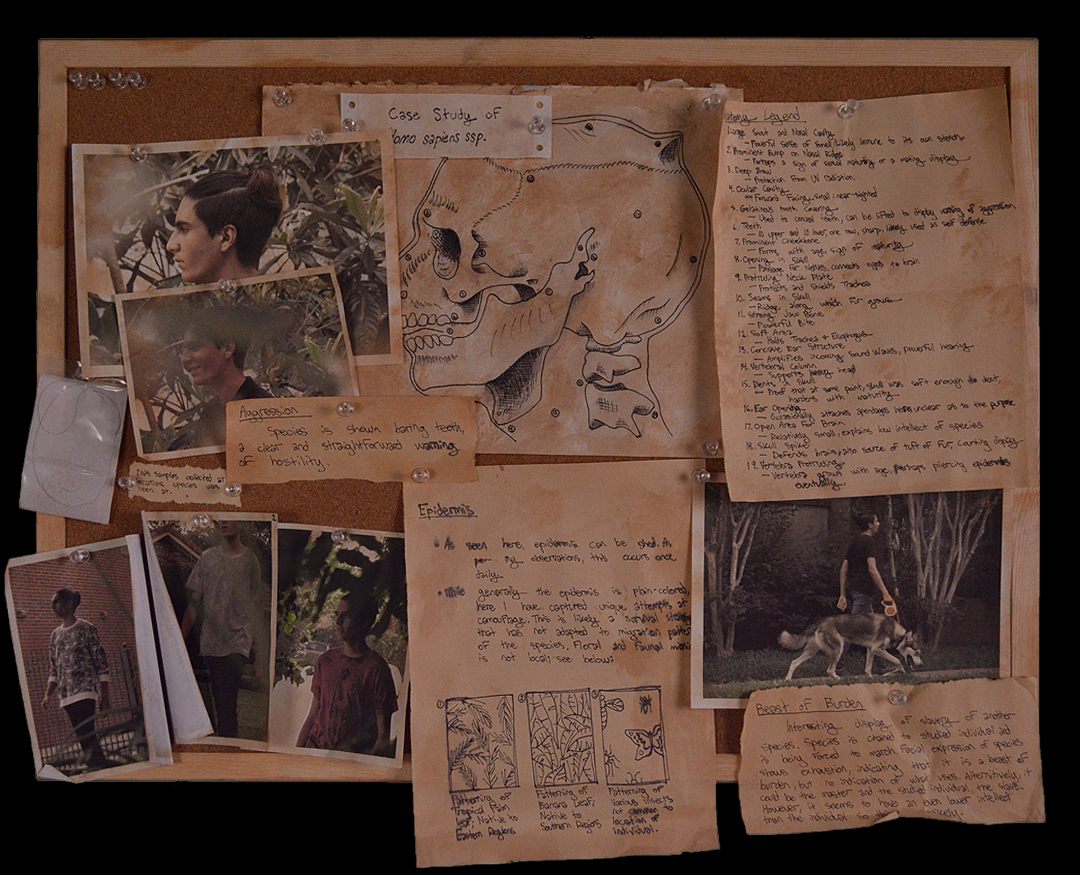 Case Study of
omo sapiens ssp.
Legend
1. Large Snout and Nasal Cavity
— Powerful sense of smell, likely immune to its own stench
2. Prominent Bump on Nasal Ridge
— Perhaps a sign of sexual maturity or a mating display
3. Deep Brow
— Protection From UV radiation
4. Ocular Cavity
— Forward Facing, small: near-sighted
5. Gelatinous tooth Covering
— Used to conceal teeth, can be lifted to display warning of aggression
6. Teeth
— 10 upper and 10 lower, one row, sharp, likely used as self defense
7. Prominent Cheekbone
— Forms with age, sign of maturity
8. Opening in Skull
— Passage For Nerves, connects eyes to brain
9. Protruding Neck Plate
— Protects and Shields Trachea
10. Seams in Skull
— Ridge along which Fur grows
11. Strong Jaw Bone
— Powerful Bite
12. Soft Area
— Holds Trachea & Esophagus
13. Concave Ear Structure
— Amplifies incoming Sound Waves, powerful hearing
14. Vertebral Column
— Supports heavy head
15. Dents in Skull
— Proof that at some point, skull was soft enough to dent,
hardens with maturity
16. Ear Opening
— Occasionally attaches apendage here, unclear as to the purpose
17. Open Area For Brain
— Relatively small, explains low intellect of species
18. Skull Spike
— Defends brain, also source of tuff of Fur, Courting display
19. Vertebra Protruding
— Vertebra grows with age, perhaps piercing epidermis
eventually
Aggression
Species is shown baring teeth,
a clear and straightforward warning
of hostility.
DNA samples collected at
locations species was
seen at.
Epidermis
• As seen here, epidermis can be shed. As
per my observations, this occurs once
daily.
• While generally the epidermis is plain-colored,
here I have captured unique attempts at
camouflage. This is likely a survival
that has not adapted to migration
of the species. Floral and Faunal
is not local: see below:
1
2
3
Patterning of
Tropical Palm
Leaf; Native to
Eastern Regions
Patterning of
Banana Leaf;
Native to
Southern Regions
Patterning of
Various insects
not common to
location of
individual.
Beast of Burden
Interesting display of slavery of another
species. Species is chained to studied individual and
is being forced to march. Facial expression of species
shows exhaustion, indicating that it is a beast of
burden, but no indication of what uses. Alternitively, it
could be the master and the studied individual, the slave.
However, it seems to have an even lower intellect
than the individual so